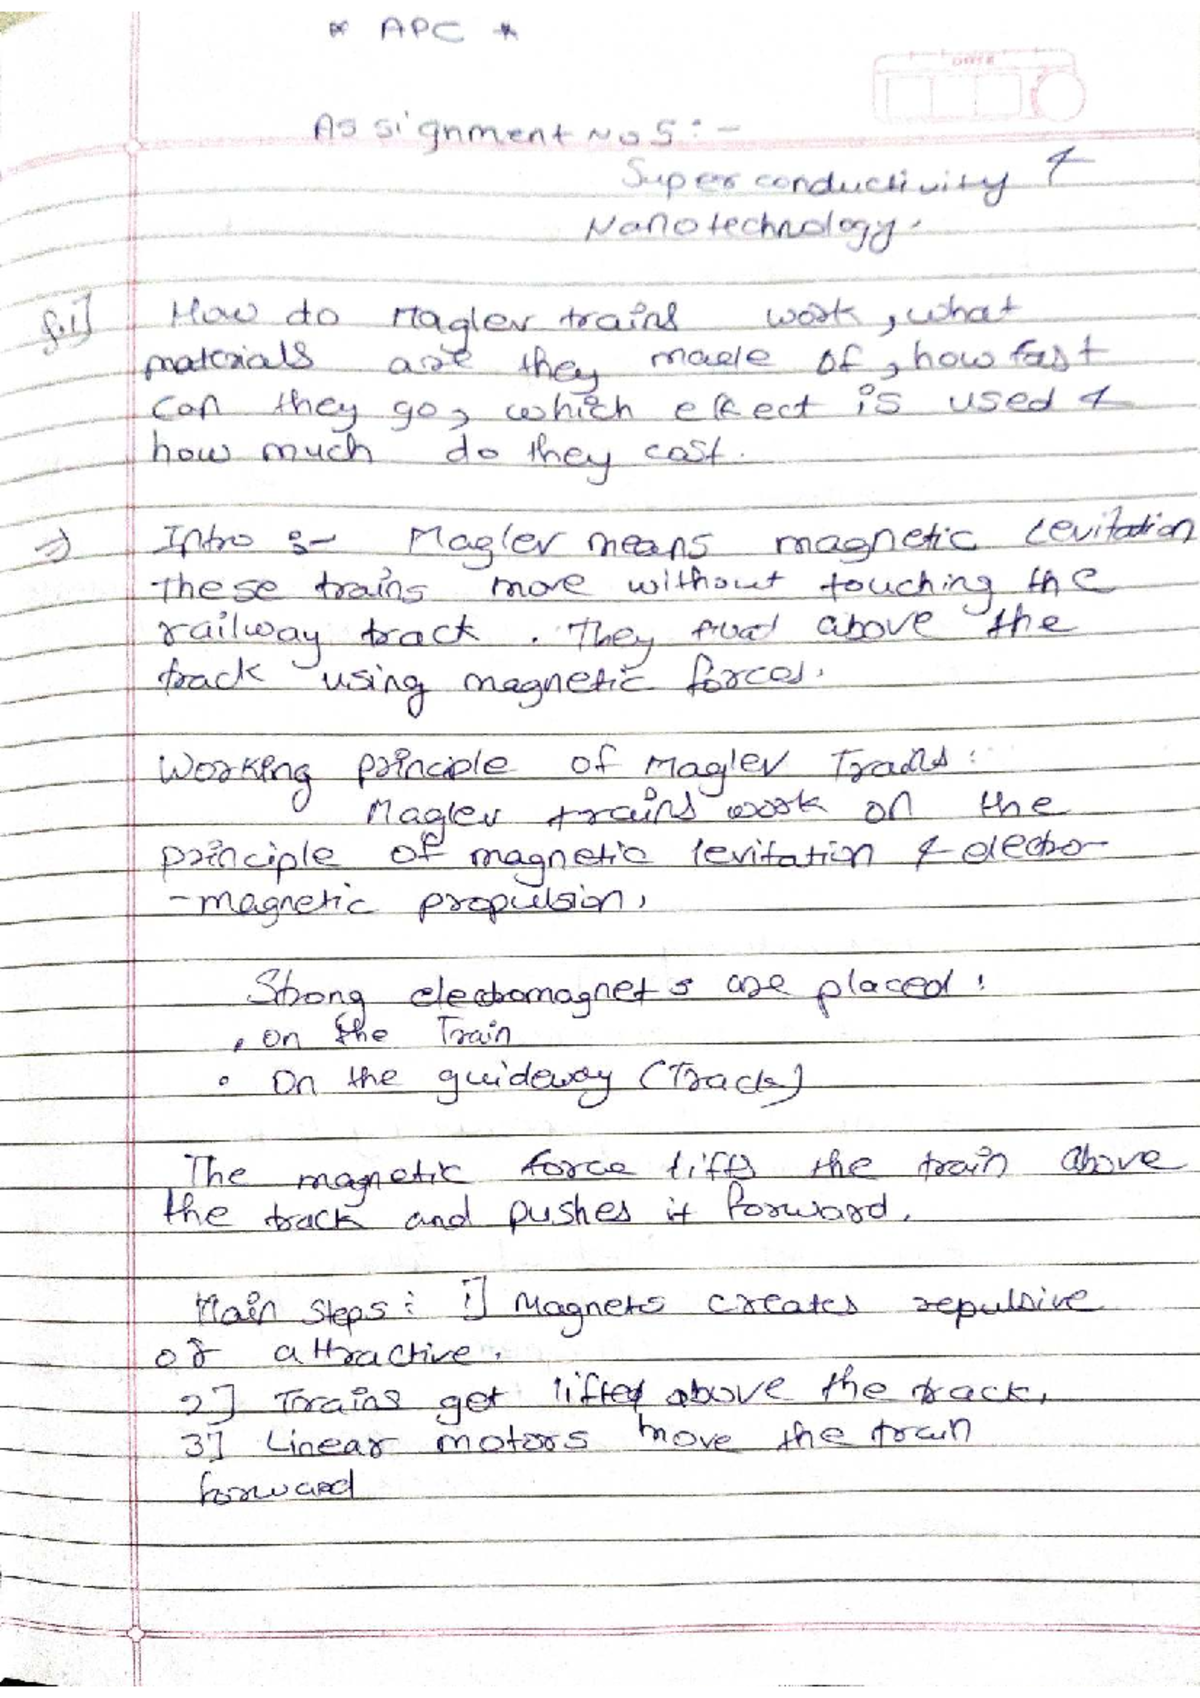 * APC *
DATE
Assignment No 5 : -
Superconductivity &
Nanotechnology.
Q.1] How do Maglev trains work, what
materials are they made of, how fast
can they go, which effect is used &
how much do they cost.
=) Intro :- Maglev means magnetic Levitation
These trains move without touching the
railway track . They above the
track using magnetic forces.
Working principle of Maglev Trains :
Maglev trains work on the
principle of magnetic levitation & electro-
-magnetic propulsion.
Strong electromagnets are placed :
• on the Train
• On the guideway (Track)
The magnetic force lifts the train above
the track and pushes it forward.
Main Steps : 1] Magnets creates repulsive
or attractive.
2] Trains get lifted above the track.
3] Linear motors move the train
forward